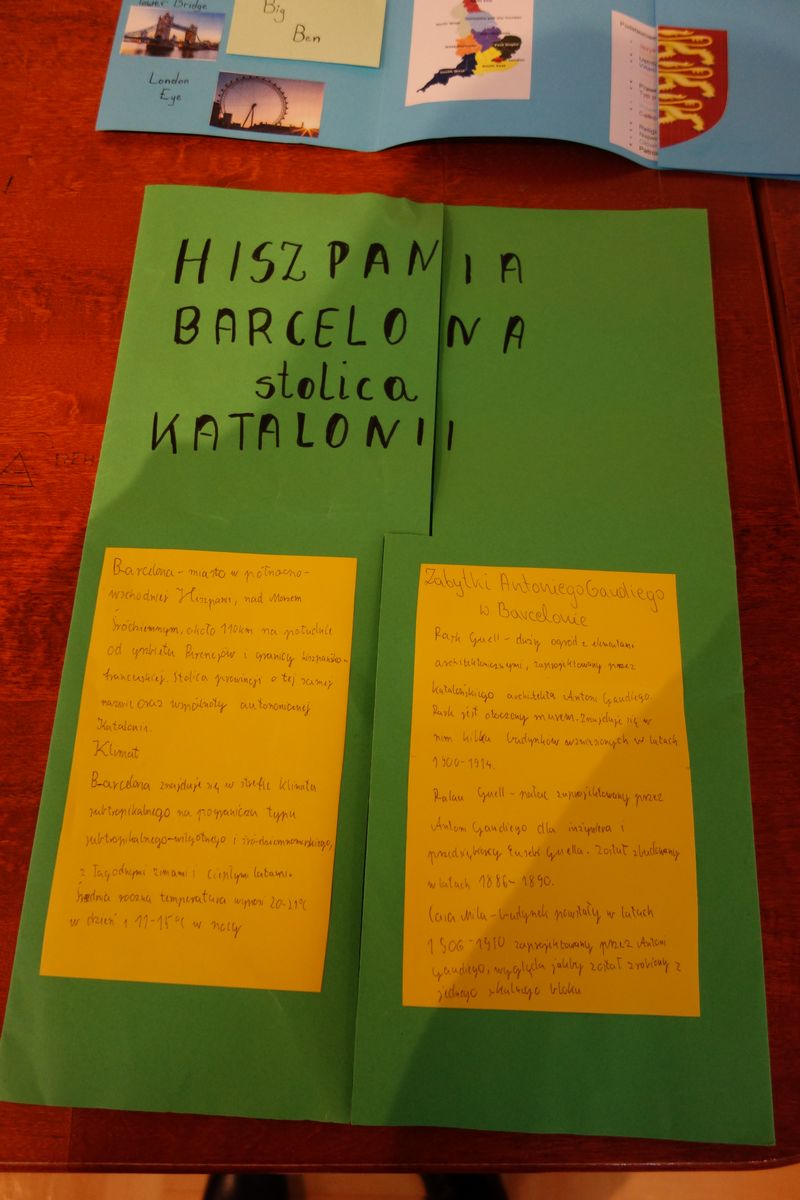 Tower Bridge
Big
Ben
London
Eye
HISZPANIA
BARCELONA
stolica
KATALONII
Barcelona - miasto w północno-
wschodniej Hiszpanii, nad Morzem
Śródziemnym, około 110km na południe
od grzbietu Pirenejów i granicy hiszpańsko-
francuskiej. Stolica prowincji o tej samej
nazwie oraz wspólnoty autonomicznej
Katalonii.
Klimat
Barcelona znajduje się w strefie klimatu
subtropikalnego na pograniczu typu
subtropikalnego-wilgotnego i śródziemnomorskiego,
z łagodnymi zimami i ciepłymi latami.
Średnia roczna temperatura wynosi 20-21°C
w dzień i 11-15°C w nocy
Zabytki Antoniego Gaudiego
w Barcelonie
Park Guell - duży ogród z elementami
architektonicznymi, zaprojektowany przez
katalońskiego architekta Antoni Gaudiego.
Park jest otoczony murem. Znajduje się w
nim kilka budynków wzniesionych w latach
1900-1914.
Palau Guell - pałac zaprojektowany przez
Antoni Gaudiego dla inżyniera i
przedsiębiorcy Guella. Został zbudowany
w latach 1886-1890.
Casa Mila - budynek powstały w latach
1906-1910 zaprojektowany przez Antoni
Gaudiego, wygląda jakby został zrobiony z
jednego skalnego bloku